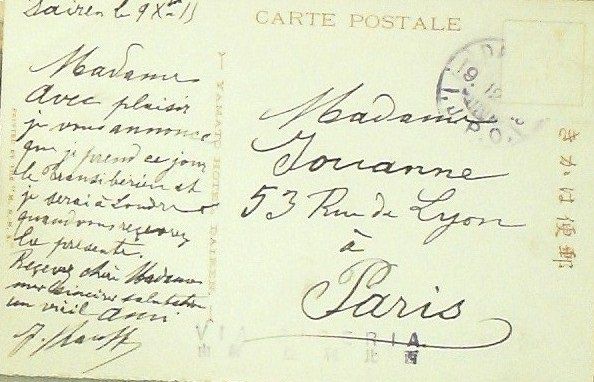 CARTE POSTALE
Madame
avec plaisir
je vous annonce
que je prend ce jour
le transiberien et
je serai à Londres
quand vous reçevrez
la présente.
Reçevez chère Madame
mes sincères salutations
un vieil ami
YAMATO HOTEL, DAIREN
Madame
Jouanne
53 Rue de Lyon
à
Paris
きかは便郵
VIA